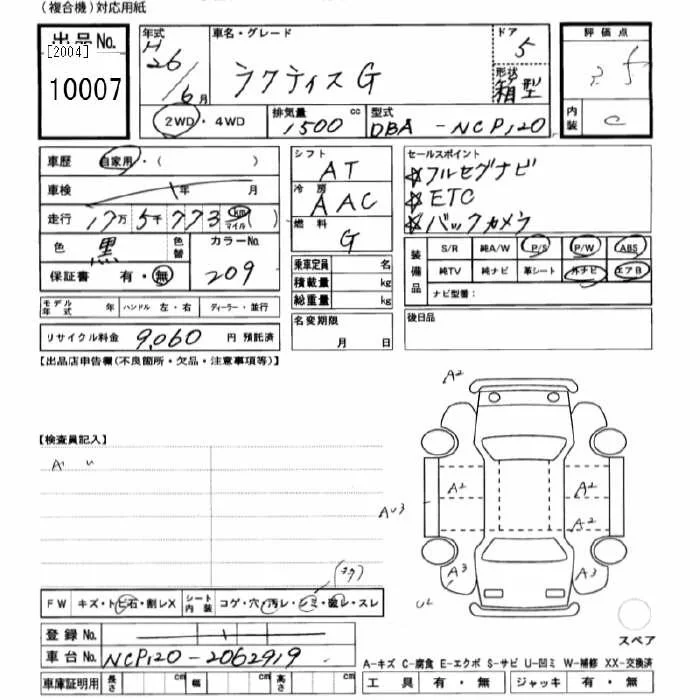 (複合機)対応用紙
出品No.
[2004]
10007
年式
H26/6月
車名・グレード
ラクティス G
ドア
5
形状
箱型
評価点
5
内装
C
2WD・4WD
排気量
1500 cc
型式
DBA - NCP120
車歴
自家用・( )
車検
年 月
走行
17万5千773 km マイル )
色
黒
色替
カラーNo.
209
保証書
有・無
モデル年式
年
ハンドル 左・右
ディーラー・並行
リサイクル料金
9,060 円 預託済
シフト
AT
冷房
AAC
燃料
G
乗車定員 名
積載量 kg
総重量 kg
名変期限
月 日
セールスポイント
☆フルセグナビ
☆ETC
☆バックカメラ
装備品
S/R 純A/W P/S P/W ABS
純TV 純ナビ 革シート 外ナビ エアB
ナビ型番:
後日品
【出品店申告欄(不良箇所・欠品・注意事項等)】
【検査員記入】
A2
A2
A2
A2
AU3
A3
A3
スペア
FW キズ・トビ石・割レX
シート内装
コゲ・穴・汚レ・シミ・破レ・スレ
登録No.
車台No.
NCP120-2062919
車庫証明用
長さ cm
幅 cm
高さ cm
A-キズ C-腐食 E-エクボ S-サビ U-凹ミ W-補修 XX-交換済
工具 有・無
ジャッキ 有・無